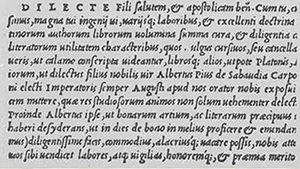 DILECTE Fili salutem, & apostolicam ben. Cum tu,
simus, magna tui ingenij ui, uarijsq; laboribus, & excellenti doctrina
tinorum authorum librorum uolumina summa cura, & diligentia c
literatorum utilitatem characteribus, quos ulgus cursiuos, seu cancella
ueris, ut calamo conscripta uideantur, libros; alios, utpote Platonis,
iorum, ut dilectus filius nobilis uir Albertus Pius de Sabaudia Carpo
ni electi Imperatoris semper Augusti apud nos orator nobis exposui
eam muttere, quæ res studiosorum animos non solum uehementer delect
Proinde Albertus ipse, ut bonarum artium, ac literarum præcipuus
haberi desyderans, ut in dies de bono in melius proficere & emundan
mus) diligentissime facis, commodius, alacriusq; uacare possis, nobis atte
uos sibi uendicet labores, atq; uigilias, honoremq;, & præmia merito